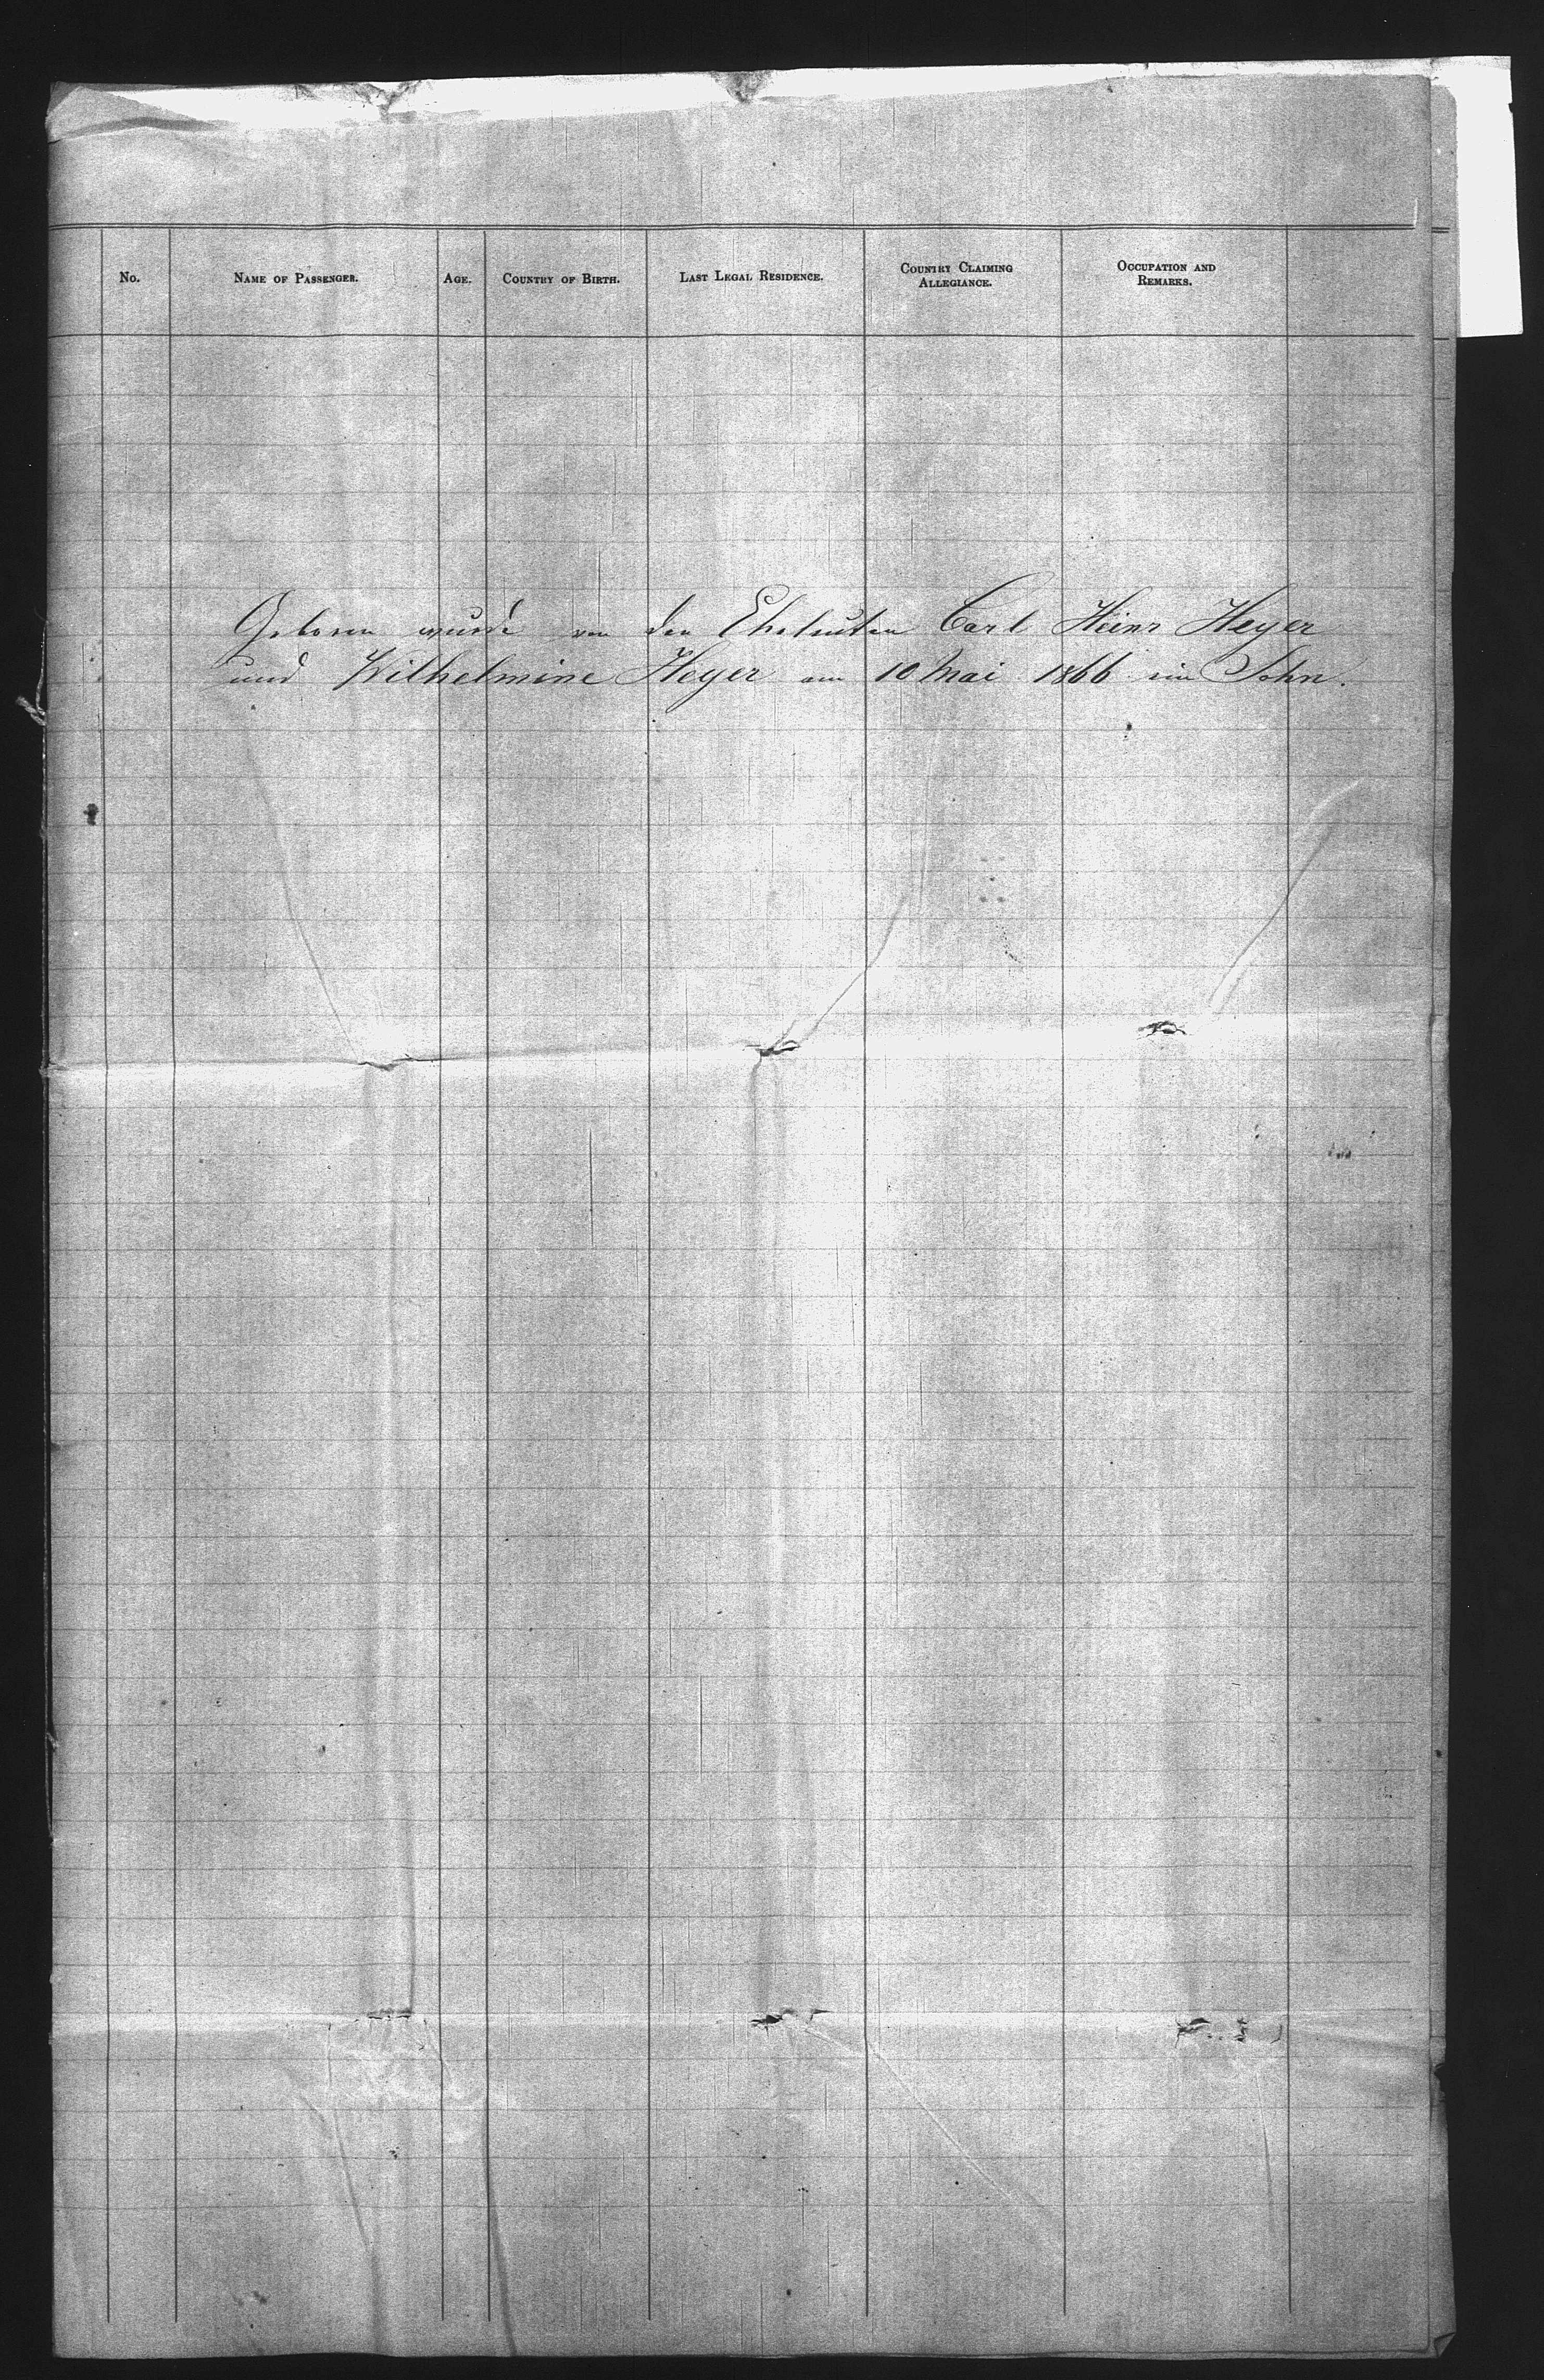 No.	NAME OF PASSENGER.	AGE.	COUNTRY OF BIRTH.	LAST LEGAL RESIDENCE.	COUNTRY CLAIMING ALLEGIANCE.	OCCUPATION AND REMARKS.
Geboren wurde von den Eheleuten Carl Heinr Heyer
und Wilhelmine Heyer am 10 Mai 1866 ein Sohn.